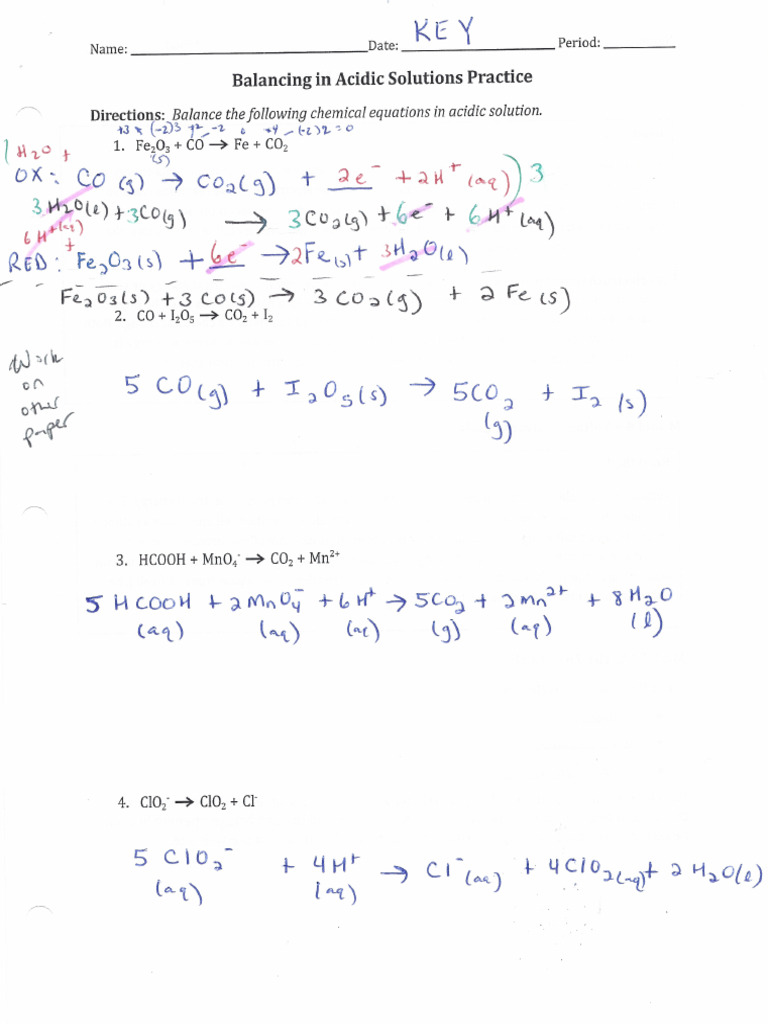 KEY
Name: ____________ Date: ____________ Period: ________
Balancing in Acidic Solutions Practice
Directions: Balance the following chemical equations in acidic solution.
+3 × (-2)3 +2 -2 0 +4 - (-2)2 = 0
1. Fe₂O₃ + CO → Fe + CO₂
(s)
1 H₂O +
OX: CO (g) → CO₂(g) + 2e⁻ + 2H⁺ (aq) ) 3
3H₂O(l) + 3CO(g) → 3CO₂(g) + 6e⁻ + 6H⁺(aq)
6H⁺(aq) +
RED: Fe₂O₃(s) + 6e⁻ → 2Fe(s) + 3H₂O(l)
Fe₂O₃(s) + 3CO(s) → 3CO₂(g) + 2Fe(s)
2. CO + I₂O₅ → CO₂ + I₂
Work
on
other
paper
5 CO(g) + I₂O₅(s) → 5CO₂ + I₂ (s)
(g)
3. HCOOH + MnO₄⁻ → CO₂ + Mn²⁺
5 HCOOH + 2MnO₄⁻ + 6H⁺ → 5CO₂ + 2Mn²⁺ + 8H₂O
(aq) (aq) (aq) (g) (aq) (l)
4. ClO₂⁻ → ClO₂ + Cl⁻
5 ClO₂⁻ + 4H⁺ → Cl⁻(aq) + 4ClO₂(aq) + 2H₂O(l)
(aq) (aq)